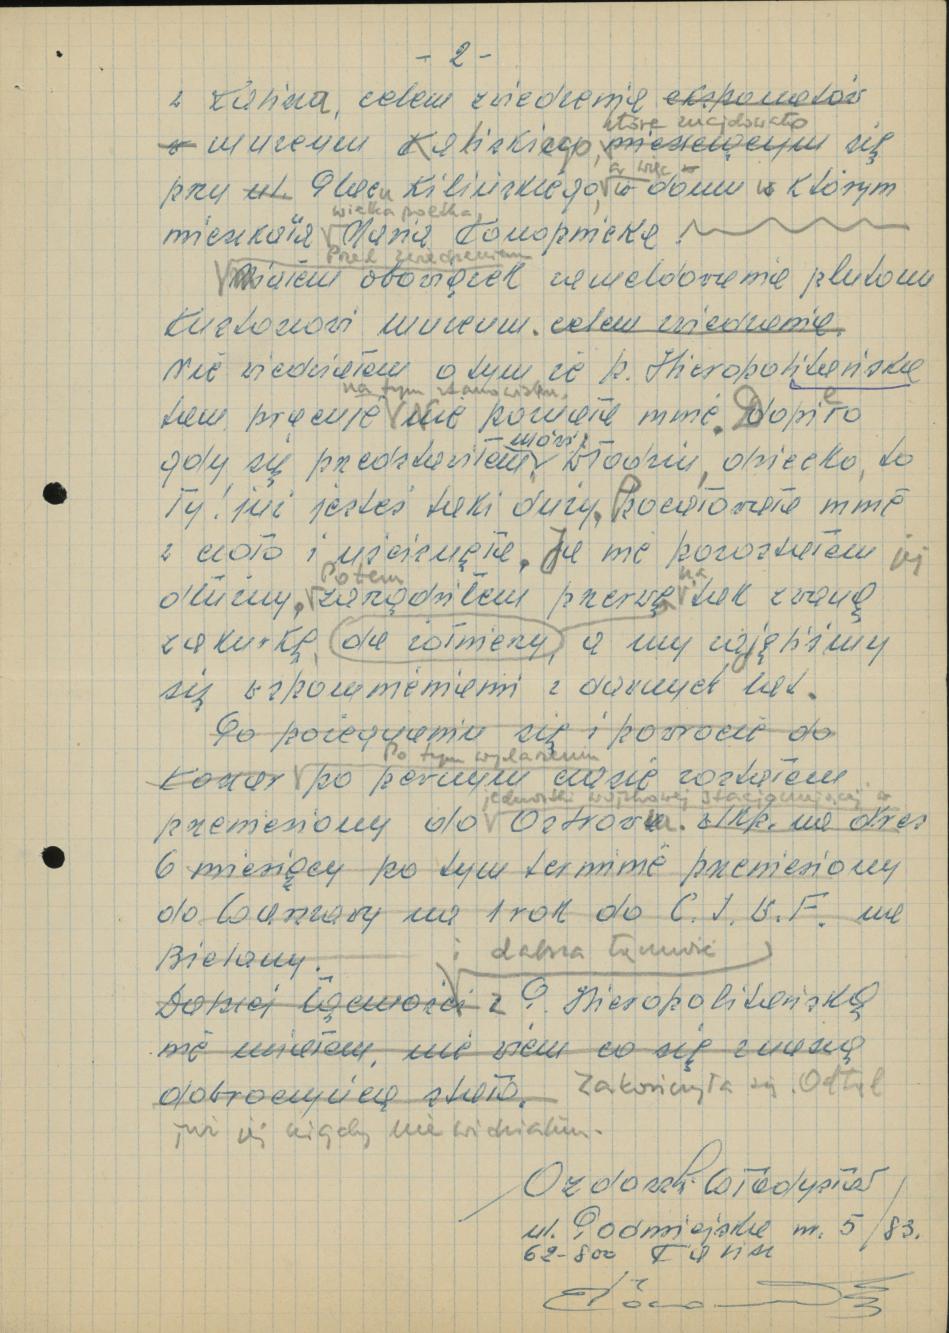 - 2 -
z Kalisza, celem zwiedzenia eksponatów
które znajdowało
w muzeum Kaliskiego, mieszczącym się
a więc
przy ul. Placu Kilińskiego, w domu w którym
wielka poetka,
mieszkała Maria Konopnicka.
Przed zwiedzeniem
Miałem obowiązek zameldowania plutonu
Kustoszowi muzeum. celem zwiedzenia.
Nie wiedziałem o tym że p. Hieropolitańska
na tym stanowisku.
tam pracuje Nie poznała mnie. Dopiero
mówi:
gdy się przedstawiłem, Władziu, dziecko, to
Ty! już jesteś taki duży, Pocałowała mnie
z czoło i uścisnęła. Ja nie pozostałem jej
Potem na
dłużny, zarządziłem przerwę tak zwaną
zakurkę, dla żołnierzy, a my zajęliśmy
się wspomnieniami z dawnych lat.
Po pożegnaniu się i powrocie do
Po tym wydarzeniu
Koszar po pewnym czasie zostałem
jednostki wojskowej stacjonującej w
przeniesiony do Ostrowa. Wlkp. na okres
6 miesięcy po tym terminie przeniesiony
do Warszawy na 1 rok do C. I. W. F. na
Bielany.
i dalsza łączność
Dalszej łączności z P. Hieropolitańską
nie miałem, nie wiem co się z naszą
dobrodziejką stało. Zakończyła się. Odtąd
już jej nigdy nie widziałem.
Ozdowski Władysław
ul. Podmiejska m. 5/83.
62-800 Kalisz